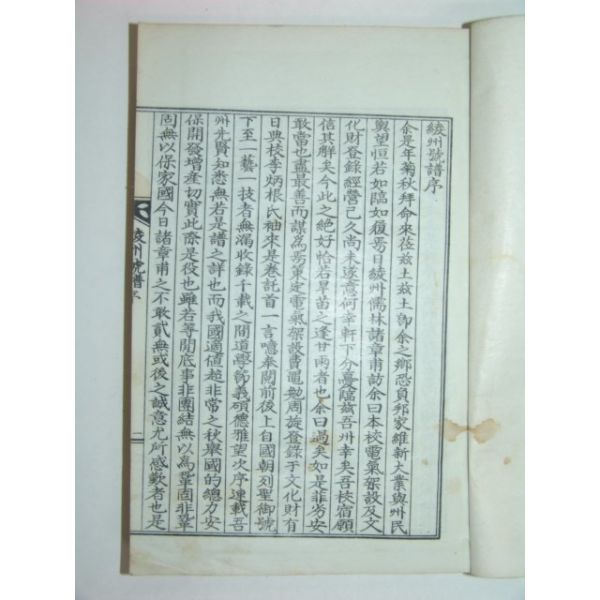 綾州號譜序
余是年菊秋拜命來莅玆土玆土卽余之鄕恐負邦家維新大業與州民
輿望恒若如臨如復焉日綾州儒林諸章甫訪余曰本校電氣架設及文
化財登錄經營已久尚未遂意何幸軒下分憂臨玆吾州幸矣吾校宿願
信其解矣今此之絶好恰若旱苗之逢甘雨者也余曰過矣如是菲劣安
敢當也盡最善而謀爲另策定電氣架設費黽勉周旋登錄于文化財有
日典校李炳根氏袖來是卷託首一言噫奉閱前後上自國朝列聖御號
下至一藝一技者無漏收錄千載之間道學節義碩德雅望次序連載吾
州先賢知悉無若是譜之詳也而我國適値超非常之秋擧國的總力安
保開發增産切實此際是役也雖若等閒底事非團結無以爲鞏固非鞏
固無以保家國今日諸章甫之不敢貳無或後之誠意尤所感歎者也是
綾州號譜序
一